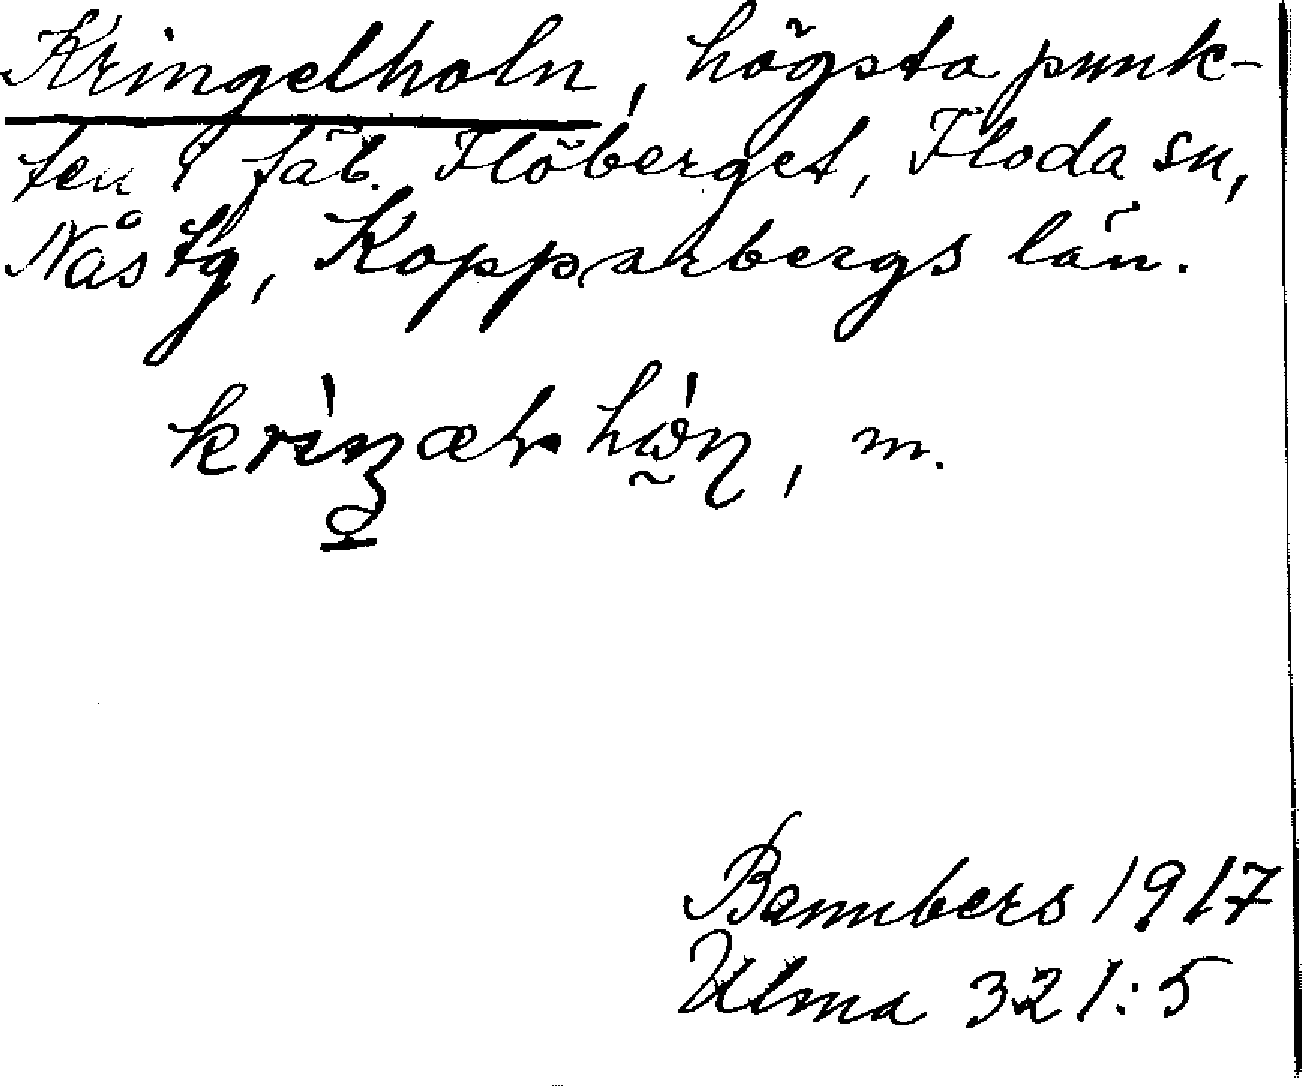 Kringelholn, högsta punk-
ten i fäb. Flöberget, Floda sn,
Nås tg, Kopparbergs län.
m.
Bannbers 1917
Ulma 321:5